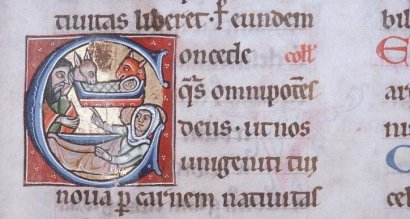 tiuitas liberet· ꝑ eundem
Concede coll
q̄s omnipotēs
deus· ut nos
unigeniti tui
noua ꝑ carnem natiuitas
bil
E
ar
nis
C
cel